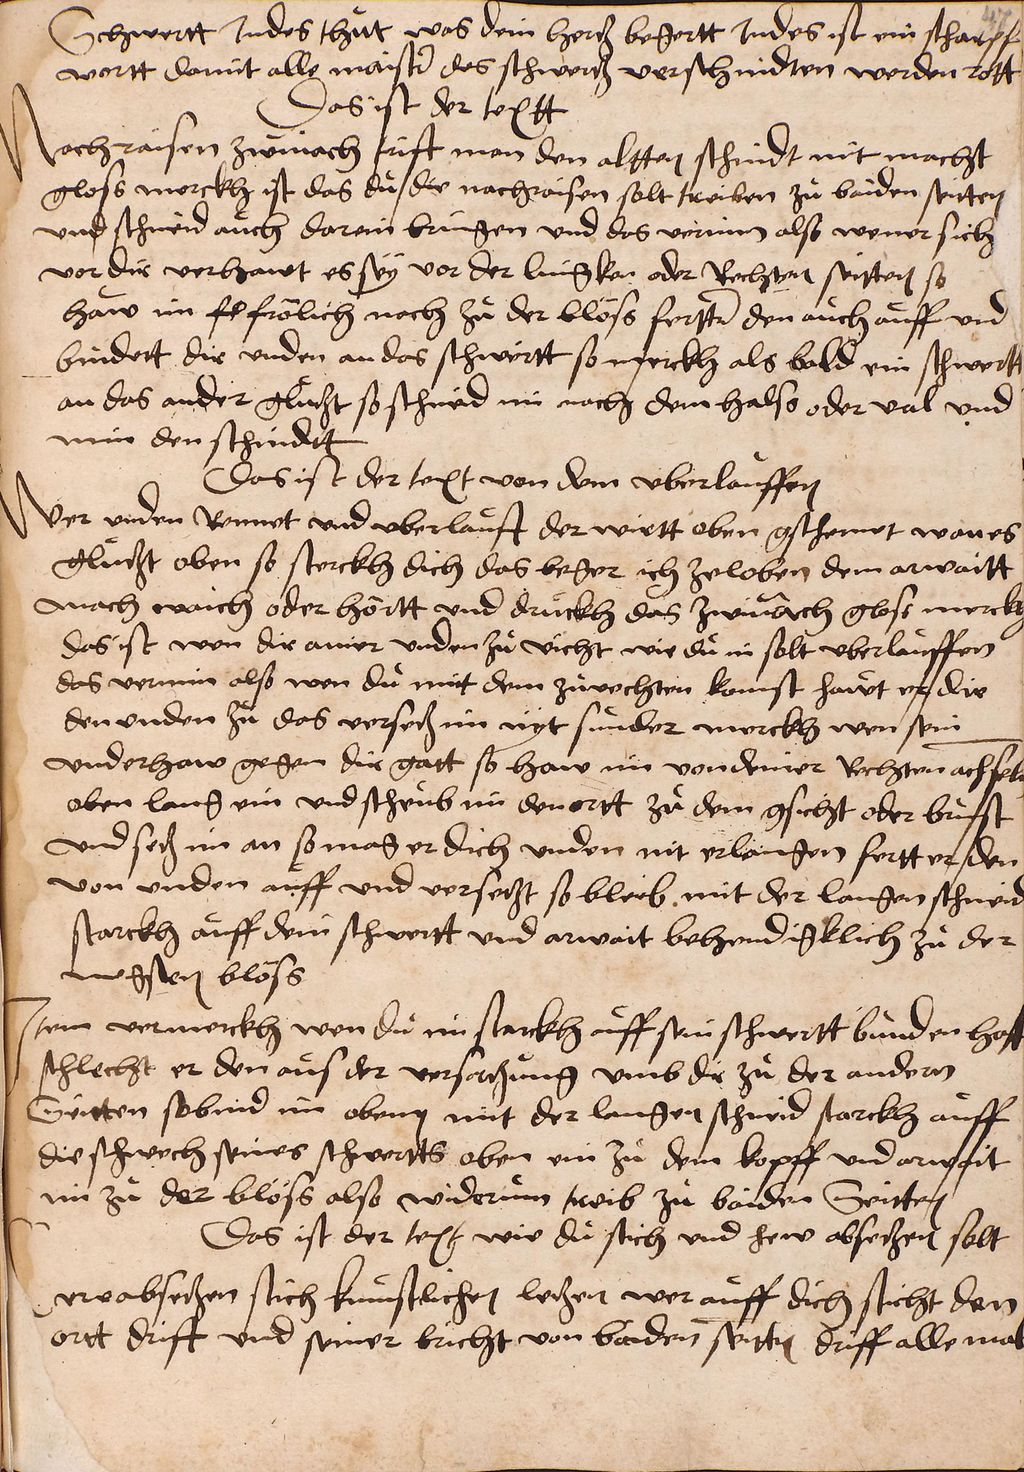 47
Schwertt Indes thůt was dein hercz begertt Indes ist ein scharpf
wortt damit alle maistr des schwercz verschnidten werden rott
Das ist der textt
Nochraisen zwinach trift man den altten schnidt mit macht
gloss merckh ist das dů die nachraisen solt treiben zů baiden seitten
und schneid aůch darein bringen und das vernim also wener sich
vor dir verhawt es seÿ vor der lingken oder Rechten seitten so
haw im frölich noch zů der blöss fertter den aůch aůff und
bindett dir unden an das schwertt so merckh als bald ein schwertt
an das ander glůczt so schneid im noch dem halss oder val und
nim den schnidtt
Das ist der text von dem uberlaůffen
Wer unden Remet und uberlaůft der wirtt oben gschemet wan es
glůczt oben so sterckh dich das beger ich ze loben dem arwaitt
mach waich oder hörtt und drůckh das zwinach gloss merckh
das ist wen dir ainer unden zů vicht wie dů in solt uberlaůffen
das vernim also wen dů mit dem zůvechten komst hawt er dir
den unden zů das versecz im nyt sunder merckh wen sein
underhaw gegen dir gatt so haw im von deiner Rechten achseln
oben lang ein und scheůb im den ortt zů dem gsicht oder brůst
und secz im an so mag er dich unden nit erlangen fertt er den
von unden aůff und verseczt so bleib mit der langen schneid
starckh aůff dem schwertt und arwait behendigklich zů der
negsten blöss
Item vermerckh wen dů im starckh aůff sein schwertt bunden hast
schlecht er den aůs der versaczůng umb dir zů der andern
Seitten so bind im oben mit der langen schneid starckh aůff
die schwech seines schwertts oben ein zů dem kopff und arwait
im zů der blöss also widerům treib zů baiden Seitten
Das ist der text wie dů stich und hew abseczen solt
abseczen stich kůnstlichen leczen wer aůff dich sticht den
ortt drift und seiner bricht von baiden seitten driff alle mal